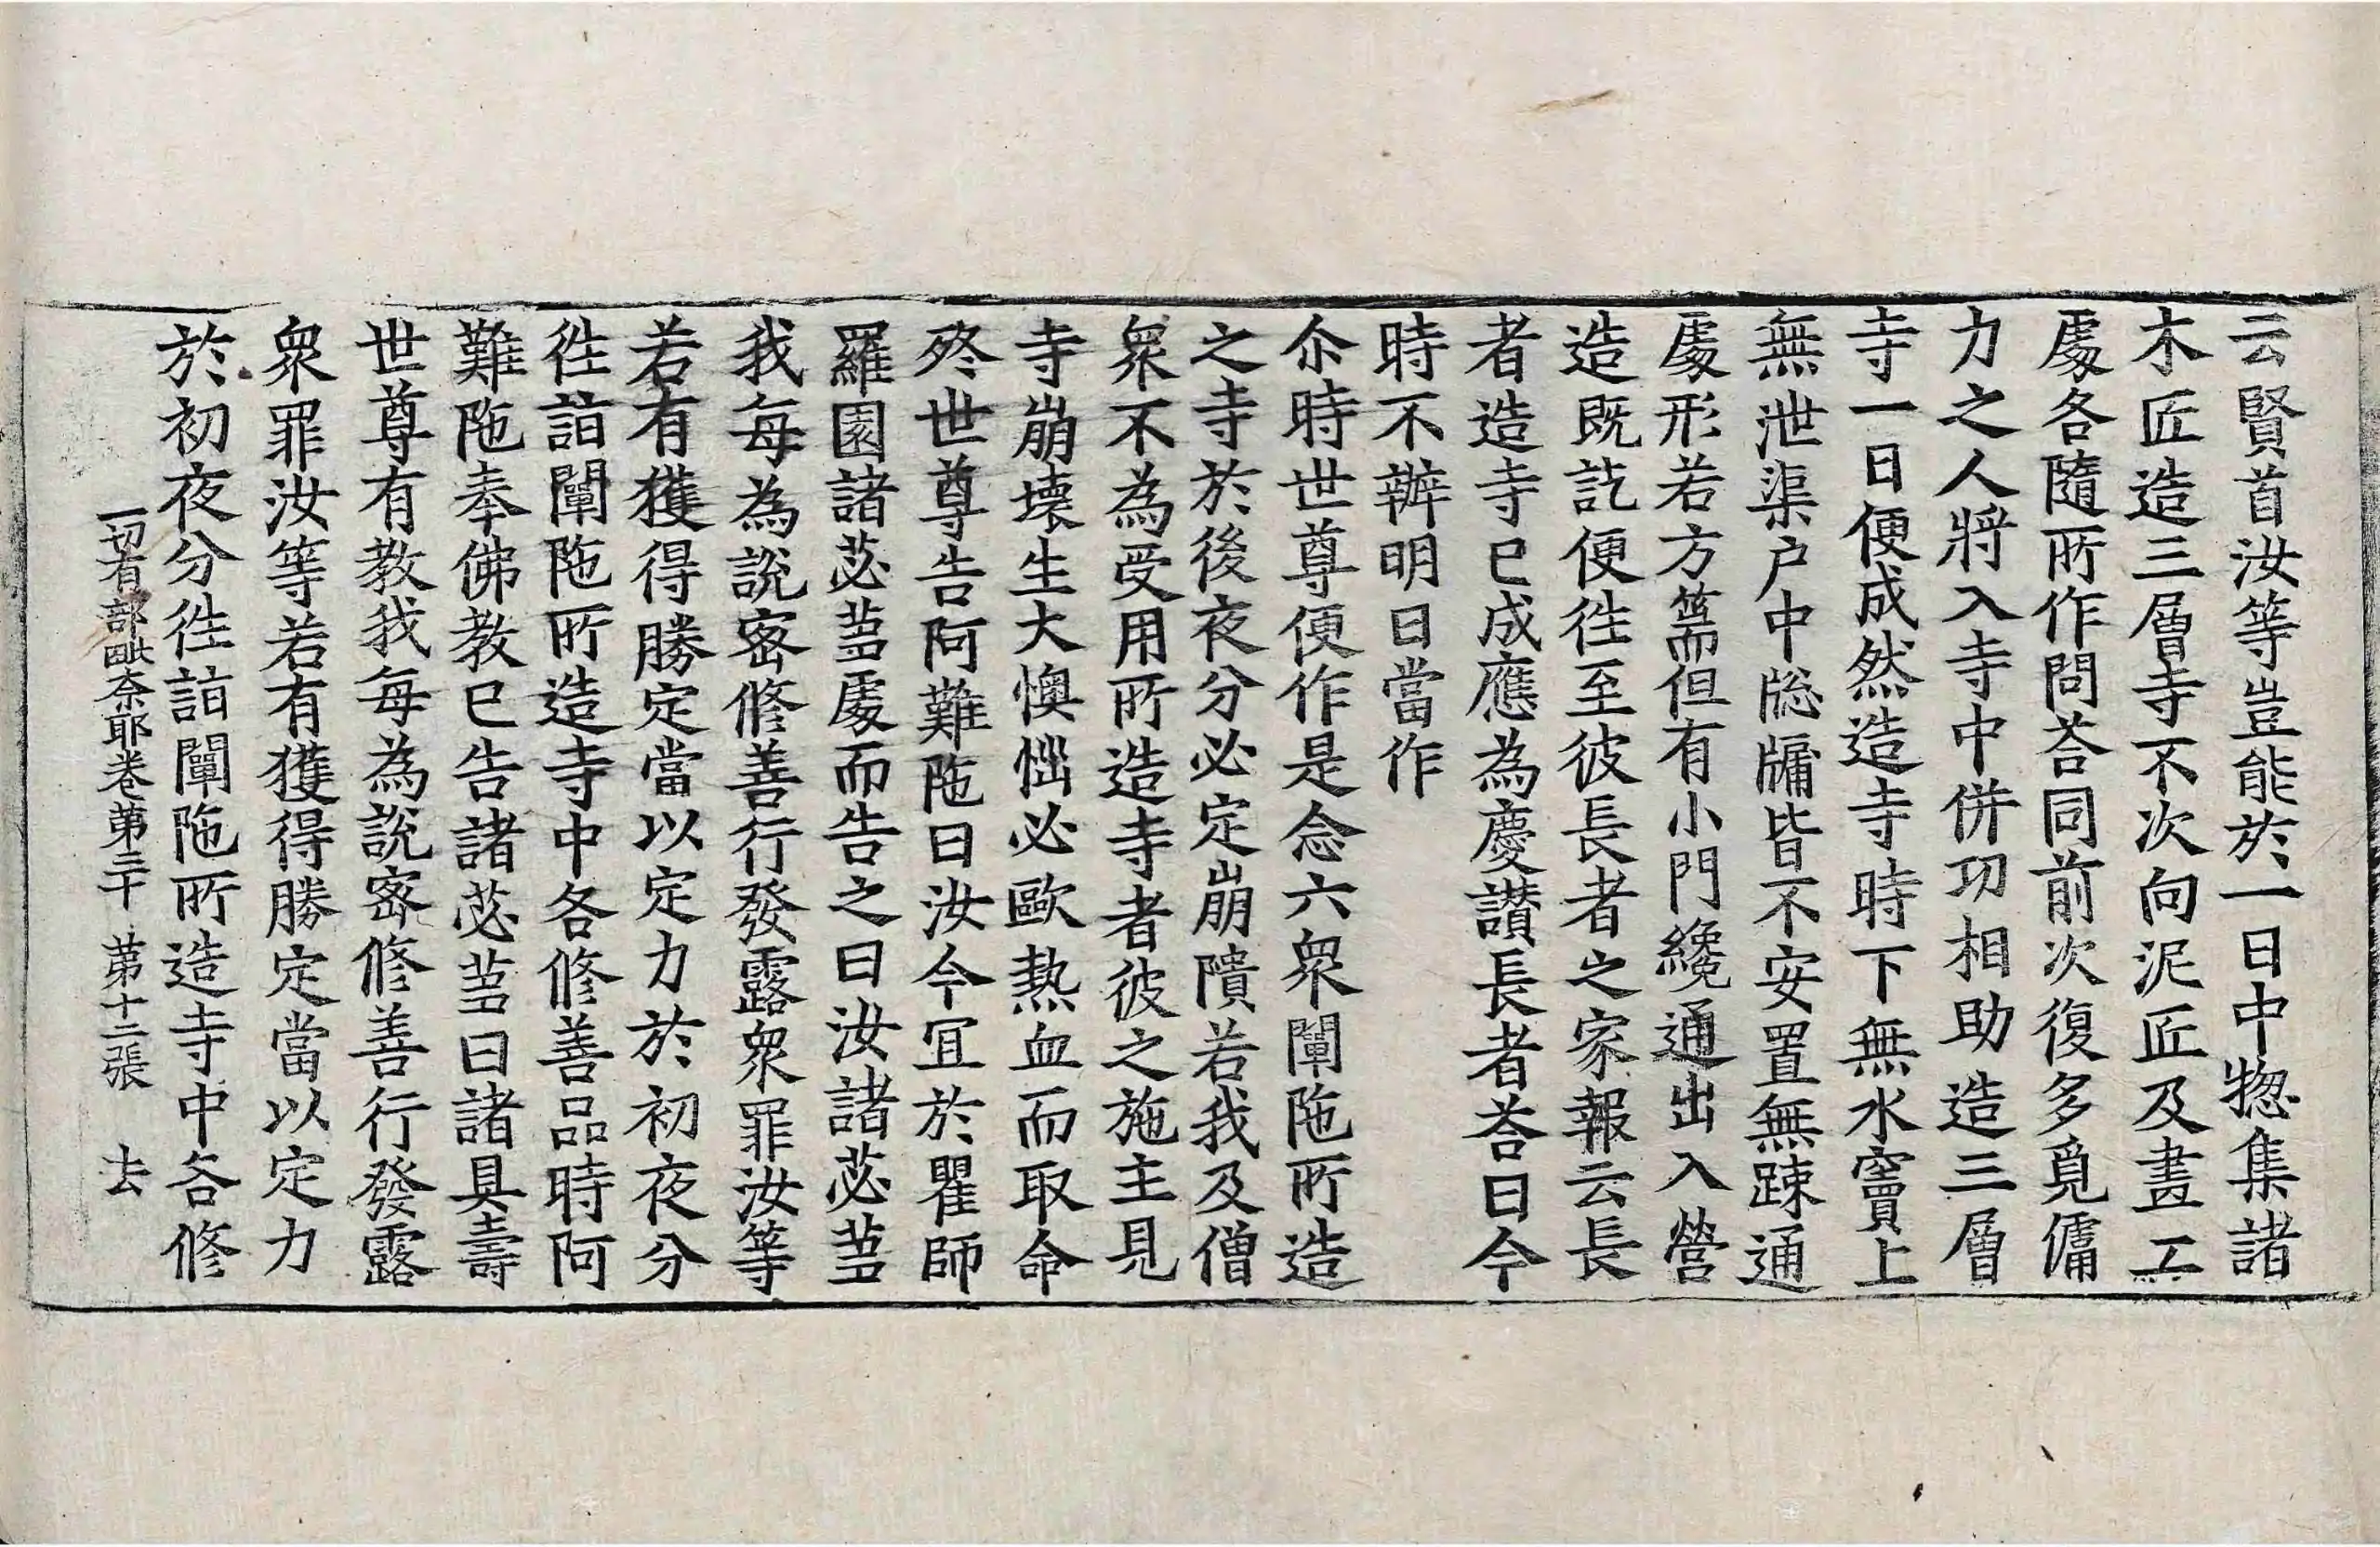 云賢首汝等豈能於一日中揔集諸
木匠造三層寺不次向泥匠及畫工
䖏各隨所作問荅同前次復多覓傭
力之人將入寺中併功相助造三層
寺一日便成然造寺時下無水竇上
無泄渠户中牎牖皆不安置無踈通
䖏形若方篅但有小門纔通出入營
造既訖便徃至彼長者之家報云長
者造寺已成應為慶讃長者荅曰今
時不辦明日當作
尒時世尊便作是念六衆闡陁所造
之寺於後夜分必定崩隤若我及僧
衆不為受用所造寺者彼之施主見
寺崩壊生大懊惱必歐熱血而取命
終世尊告阿難陁曰汝今冝於瞿師
羅園諸苾蒭䖏而告之曰汝諸苾蒭
我每為說宻修善行發露衆罪汝等
若有獲得勝定當以定力於初夜分
徃詣闡陁所造寺中各修善品時阿
難陁奉佛教已告諸苾蒭曰諸具壽
世尊有教我每為說宻修善行發露
衆罪汝等若有獲得勝定當以定力
於初夜分徃詣闡陁所造寺中各修
一切有部毗奈耶卷第三十 第十二張 去